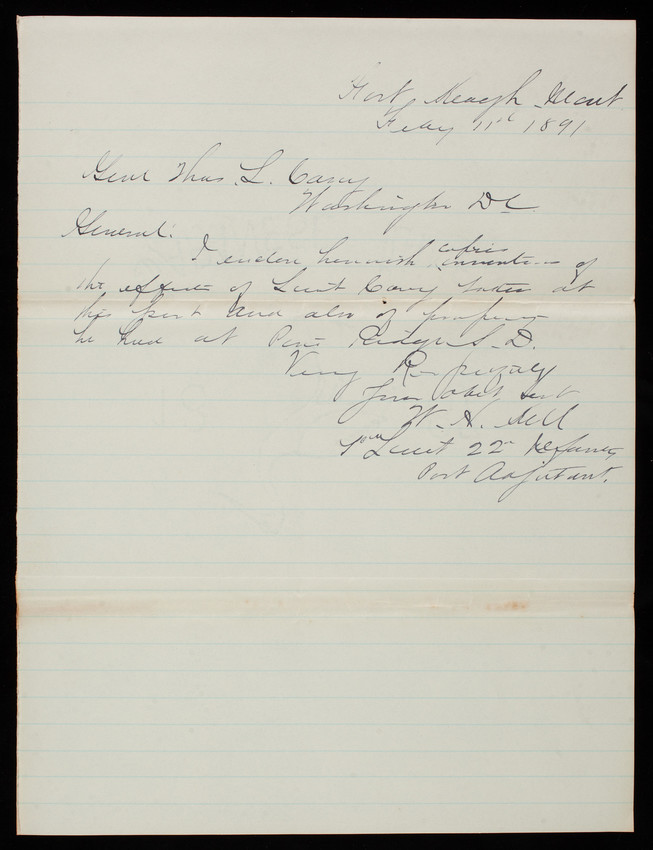 Fort Keogh Mont
Feby 11th 1891
Genl Thos. L. Casey
Washington DC.
General:
I enclose herewith copies inventories of
the effects of Lieut Casey taken at
this post and also of property
he had at Pine Ridge S. D.
Very Respectfully
Your obdt servt
W. H.
1st Lieut 22nd Infantry
Post Adjutant.